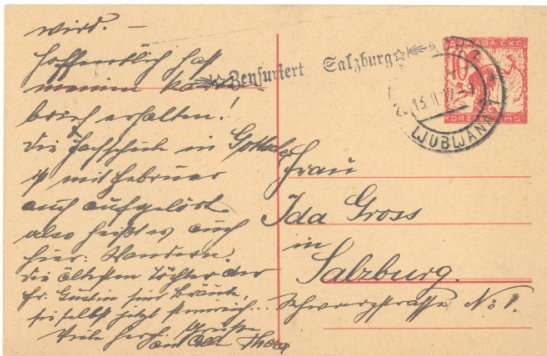 wird. —
Hoffentlich hast
meinen
brief erhalten!
Die Fachschule in
ist mit Februar
auch aufgelöst
also heißt es auch
hier: Wandern.
Die ältesten Töchter der
Fr. sind Bräute,
sie selbst jetzt
Viele herzl. Grüße
Zensuriert Salzburg
10
LJUBLJANA 1
Frau
Ida Gross
in
Salzburg.
Schwarzstrasse No 1.